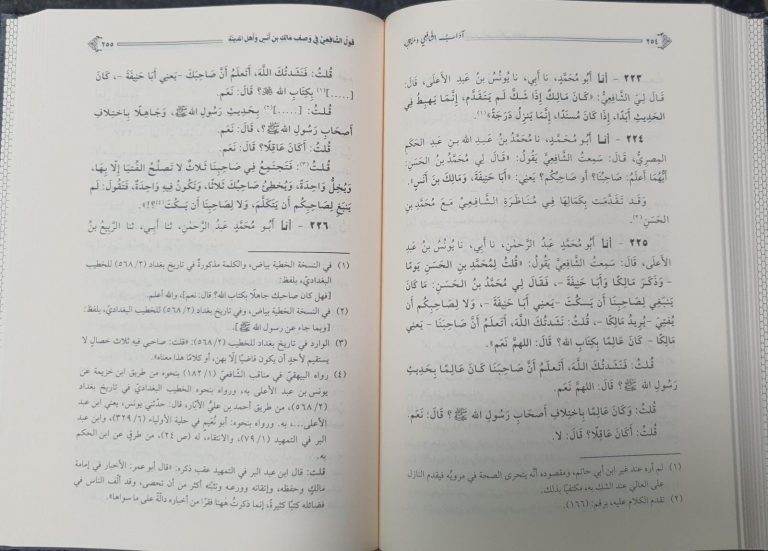 ٢٥٤
آداب الشافعي ومناقبه
٢٢٣ - أنا أَبُو مُحَمَّدٍ، نا أَبِي، نا يُونُسُ بْنُ عَبدِ الأَعلَى، قَالَ:
قَالَ لِيَ الشَّافِعِيُّ: «كَانَ مَالِكٌ إِذَا شَكَّ لَمْ يَتَقَدَّم، إِنَّمَا يَهبِطُ فِي
الحَدِيثِ أَبَدًا، إِذَا كَانَ مُسنَدًا، إِنَّمَا يَنزِلُ دَرَجَةً»(١).
٢٢٤ - أنا أَبُو مُحَمَّدٍ، نا مُحَمَّدُ بنُ عَبدِ الله بنِ عَبدِ الحَكَمِ
المِصرِيُّ، قَالَ: سَمِعتُ الشَّافِعِيَّ يَقُولُ: «قَالَ لِي مُحَمَّدُ بنُ الحَسَنِ:
أَيُّهُمَا أَعلَمُ: صَاحِبُنَا؟ أو صَاحِبُكُم؟ يَعنِي: أَبَا حَنِيفَةَ، وَمَالِكَ بنَ أَنَسٍ.
وَقَد تَقَدَّمَت بِكَمَالِهَا فِي مُنَاظَرَةِ الشَّافِعِيِّ مَعَ مُحَمَّدِ بنِ
الحَسَنِ(٢).
٢٢٥ - أنا أَبُو مُحَمَّدٍ عَبدُ الرَّحْمنِ، نا أَبِي، نا يُونُسُ بنُ عَبدِ
الأَعلَى، قَالَ: سَمِعتُ الشَّافِعِيَّ يَقُولُ: «قُلتُ لِمُحَمَّدِ بنِ الحَسَنِ يَومًا
- وَذَكَرَ مَالِكًا وَأَبَا حَنِيفَةَ -، فَقَالَ لِي مُحَمَّدُ بنُ الحَسَنِ: مَا كَانَ
يَنبَغِي لِصَاحِبِنَا أَن يَسكُتَ - يَعنِي أَبَا حَنِيفَةَ -، وَلَا لِصَاحِبِكُم أَن
يُفتِيَ - يُرِيدُ مَالِكًا -. قُلتُ: نَشَدتُكَ اللَّهَ، أَتَعلَمُ أَنَّ صَاحِبَنَا - يَعنِي
مَالِكًا - كَانَ عَالِمًا بِكِتَابِ اللهِ؟ قَالَ: اللهمَّ نَعَم».
قُلتُ: فَنَشَدتُكَ اللَّهَ، أَتَعلَمُ أَنَّ صَاحِبَنَا كَانَ عَالِمًا بِحَدِيثِ
رَسُولِ اللهِ ﷺ؟ قَالَ: اللهمَّ نَعَم.
قُلتُ: وَكَانَ عَالِمًا بِاختِلَافِ أَصحَابِ رَسُولِ اللهِ ﷺ؟ قَالَ: نَعَم.
قُلتُ: أَكَانَ عَاقِلًا؟ قَالَ: لا.
(١) لم أره عند غير ابن أبي حاتم، ومقصوده أنَّه يتحرى الصحة في مرويِّه فيقدم النازل
على العالي عند الشك به، مكتفيًا بذلك.
(٢) تقدم الكلام عليه، برقم: (١٦٦).
قول الشافعي في وصف مالك بن أنس وأهل المدينة
٢٥٥
قُلتُ: فَنَشَدتُكَ اللَّهَ، أَتَعلَمُ أَنَّ صَاحِبَكَ - يَعنِي أَبَا حَنِيفَةَ -، كَانَ
[.....](١) بِكِتَابِ اللهِ ﷻ؟ قَالَ: نَعَم.
قُلتُ: [.....](٢) بِحَدِيثِ رَسُولِ اللهِ ﷺ، وَجَاهِلًا بِاختِلَافِ
أَصحَابِ رَسُولِ اللهِ ﷺ؟، قَالَ: نَعَم.
قُلتُ: أَكَانَ عَاقِلًا؟ قَالَ: نَعَم.
قُلتُ(٣): فَتَجتَمِعُ فِي صَاحِبِنَا ثَلَاثٌ لَا تَصلُحُ الفُتيَا إِلَّا بِهَا،
وَيُخِلُّ وَاحِدَةً، وَيُخطِئُ صَاحِبُكَ ثَلَاثًا، وَتَكُونُ فِيهِ وَاحِدَةٌ، فَتَقُولُ: لَم
يَنبَغِ لِصَاحِبِكُم أَن يَتَكَلَّمَ، وَلَا لِصَاحِبِنَا أَن يَسكُتَ؟!»(٤).
٢٢٦ - أنا أَبُو مُحَمَّدٍ عَبدُ الرَّحْمنِ، ثنا أَبِي، ثنا الرَّبِيعُ بنُ
(١) في النسخة الخطية بياض، والكلمة مذكورةٌ في تاريخ بغداد (٥٦٨/٢) للخطيب
البغداديِّ، بلفظ:
[فهل كان صاحبك جاهلًا بكتاب الله؟ قال: نعم]، والله أعلم.
(٢) في النسخة الخطية بياض، وفي تاريخ بغداد (٥٦٨/٢) للخطيب البغداديِّ، بلفظ:
[وبما جاء عن رسول الله ﷺ].
(٣) الوارد في تاريخ بغداد للخطيب (٥٦٨/٢): «قلت: صاحبي فيه ثلاث خصال لا
يستقيم لأحدٍ أن يكون قاضيًا إلَّا بهن، أو كلامًا هذا معناه».
(٤) رواه البيهقيُّ في مناقب الشَّافعيِّ (١٨٢/١) بنحوه من طريق ابن خزيمة عن
يونس بن عبد الأعلى به، ورواه بنحوه الخطيب البغداديُّ في تاريخ بغداد
(٥٦٨/٢)، من طريق أحمد بن عليٍّ الأبَّار، قال: حدَّثني يونس، يعني ابن عبد
الأعلى...، به. ورواه بنحوه: أبو نُعَيم في حلية الأولياء (٣٢٩/٦)، وابن عبد
البر في التمهيد (٧٩/١)، والانتقاء، له (ص ٢٤)، من طرقٍ عن ابن الحكم
به.
قلت: قال ابن عبد البر في التمهيد عقب ذكره: «قال أبو عمر: الأخبار في إمامة
مالكٍ وحفظه، وإتقانه وورعه وتثبُّته أكثر من أن تحصى، وقد ألَّف الناس في
فضائله كتبًا كثيرةً، إنما ذكرتُ هٰهنا فقرًا من أخباره دالَّةً على ما سواها».